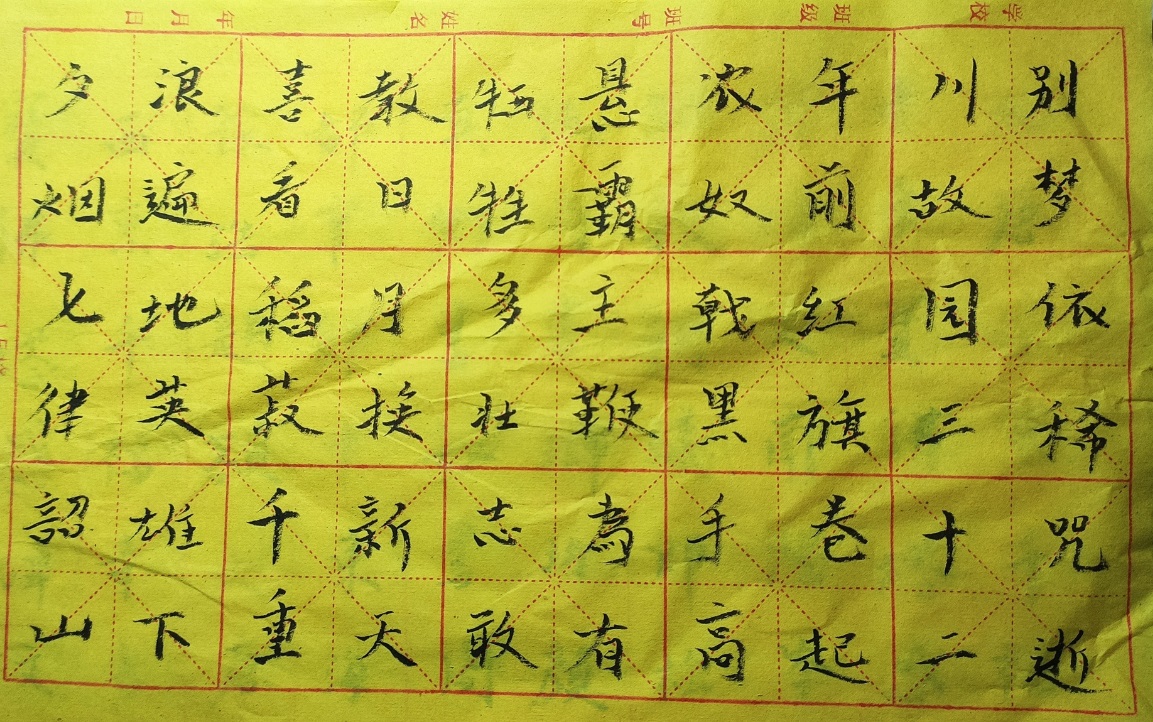 学校 班级 班号 姓名 年 月 日
别梦依稀咒逝
川故园三十二
年前红旗卷起
农奴戟黑手高
悬霸主鞭為有
牺牲多壮志敢
教日月换新天
喜看稻菽千重
浪遍地英雄下
夕烟七律韶山